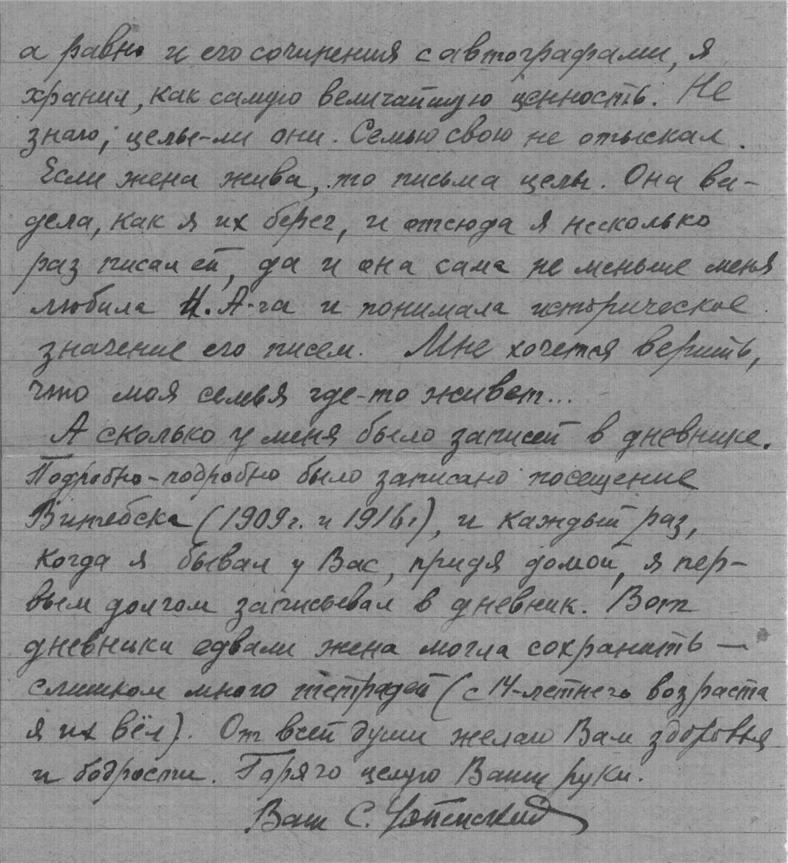 а равно и его сочинения с автографами, я
хранил, как самую величайшую ценность. Не
знаю, целы-ли они. Семью свою не отыскал.
Если жена жива, то письма целы. Она ви-
дела, как я их берег, и отсюда я несколько
раз писал ей, да и она сама не меньше меня
любила Н. А-га и понимала историческое
значение его писем. Мне хочется верить,
что моя семья где-то живет...
А сколько у меня было записей в дневнике.
Подробно-подробно было записано посещение
Витебска (1909 г. и 1914 г.), и каждый раз,
когда я бывал у Вас, придя домой, я пер-
вым долгом записывал в дневник. Вот
дневники едвали жена могла сохранить —
слишком много тетрадей (с 14-летнего возраста
я их вёл). От всей души желаю Вам здоровья
и бодрости. Горячо целую Ваши руки.
Ваш С.